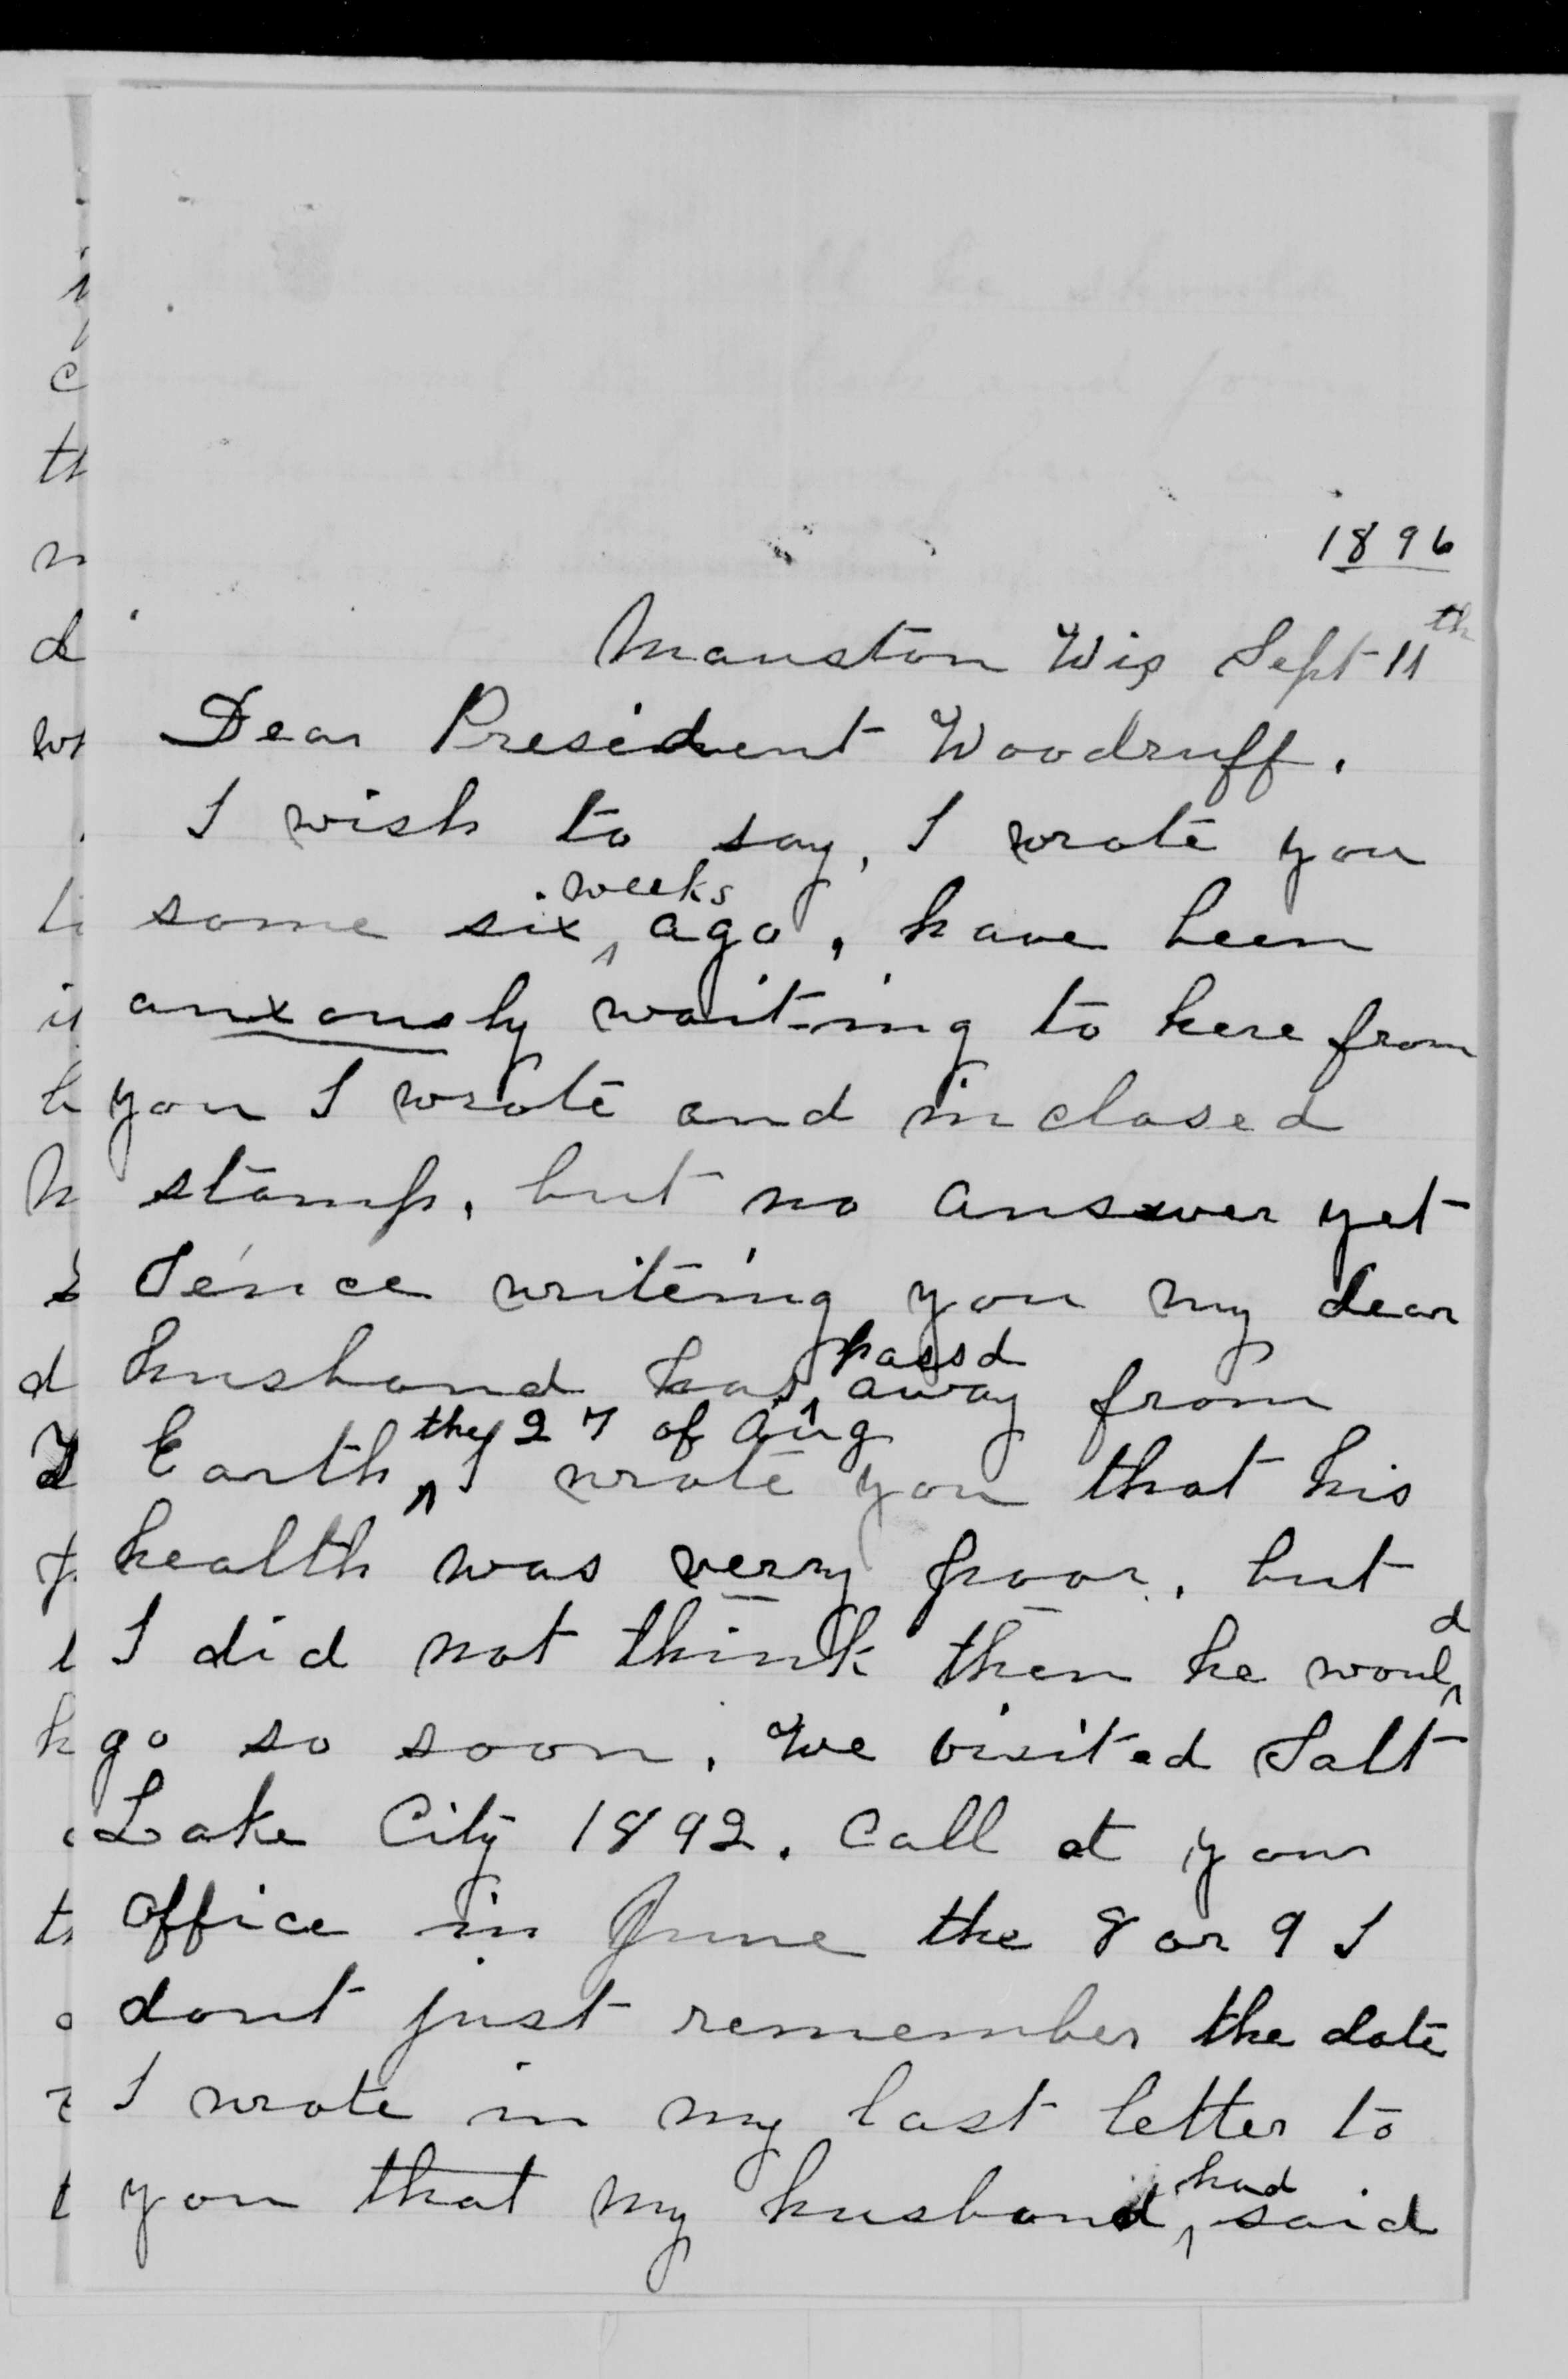 1896
Mauston Wis Sept 11th
Dear President Woodruff.
I wish to say, I wrote you
some six weeks ago, have been
anxously waiting to here from
you I wrote and inclosed
stamp, but no answer yet
Sence writeing you my dear
husband has passd away from
Earth the 27 of Aug I wrote you that his
health was verry poor, but
I did not think then he would
go so soon. We visited Salt
Lake City 1892. Call at your
office in June the 8 or 9 I
dont just remember the date
I wrote in my last letter to
you that my husband had said